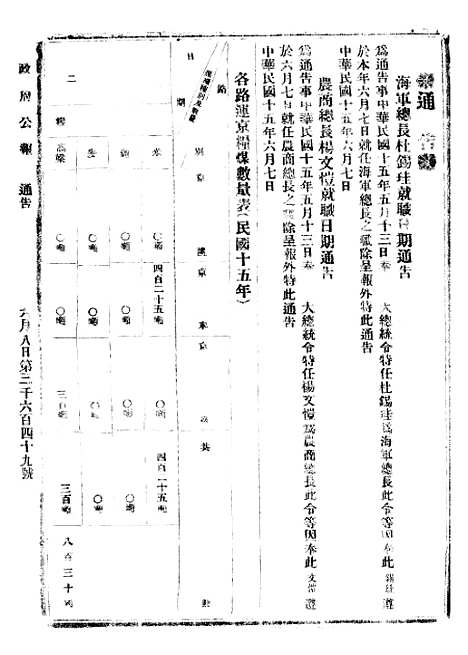 通告
海軍總長杜錫珪就職日期通告
爲通告事中華民國十五年五月十三日奉　大總統令特任杜錫珪爲海軍總長此令等因奉此錫珪遵
於本年六月七日就任海軍總長之職除呈報外特此通告
中華民國十五年六月七日
農商總長楊文愷就職日期通告
爲通告事中華民國十五年五月十三日奉　大總統令特任楊文愷爲農商總長此令等因奉此文愷遵
於六月七日就任農商總長之職除呈報外特此通告
中華民國十五年六月七日
各路運京糧煤數量表（民國十五年）
路別　京漢　京奉　京　共
日期
米　〇噸　四百二十五噸　四百二十五噸
〇噸　〇噸　〇噸
〇噸　〇噸　〇噸
〇噸　〇噸　三百噸　三百噸
二
政府公報　通告
六月八日第三千六百四十九號